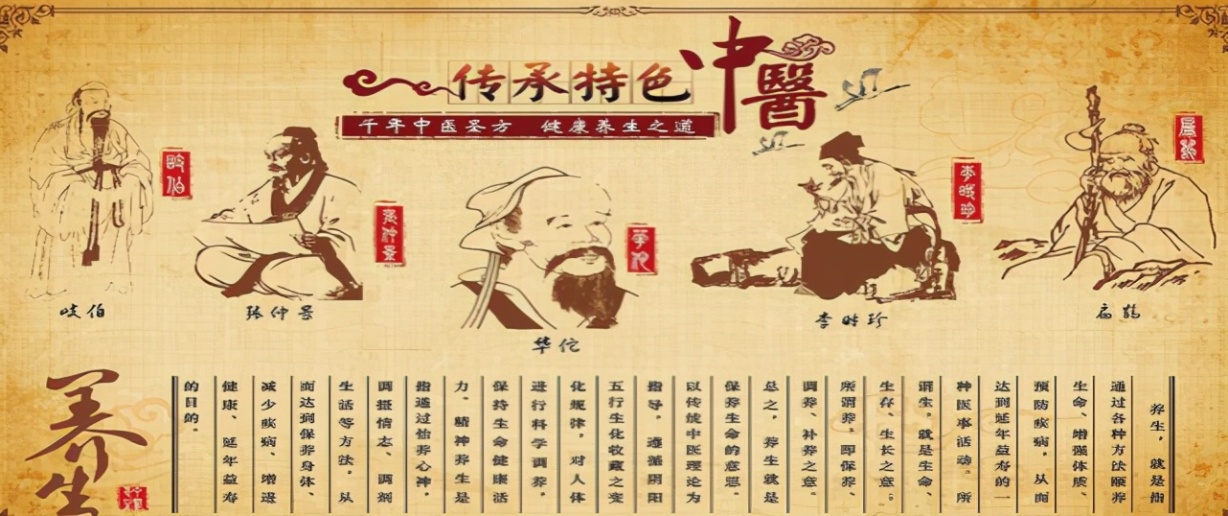 传承特色中醫
千年中医圣方 健康养生之道
岐伯
岐伯
张仲景
张仲景
华佗
华佗
李时珍
李时珍
扁鹊
扁鹊
养生
养生，就是指
通过各种方法颐养
生命、增强体质、
预防疾病，从而
达到延年益寿的一
种医事活动。所
谓生，就是生命、
生存、生长之意；
所谓养，即保养、
调养、补养之意。
总之，养生就是
保养生命的意思。
以传统中医理论为
指导，遵循阴阳
五行生化收藏之变
化规律，对人体
进行科学调养，
保持生命健康活
力。精神养生是
指通过怡养心神，
调摄情志、调剂
生活等方法，从
而达到保养身体、
减少疾病、增进
健康、延年益寿
的目的。